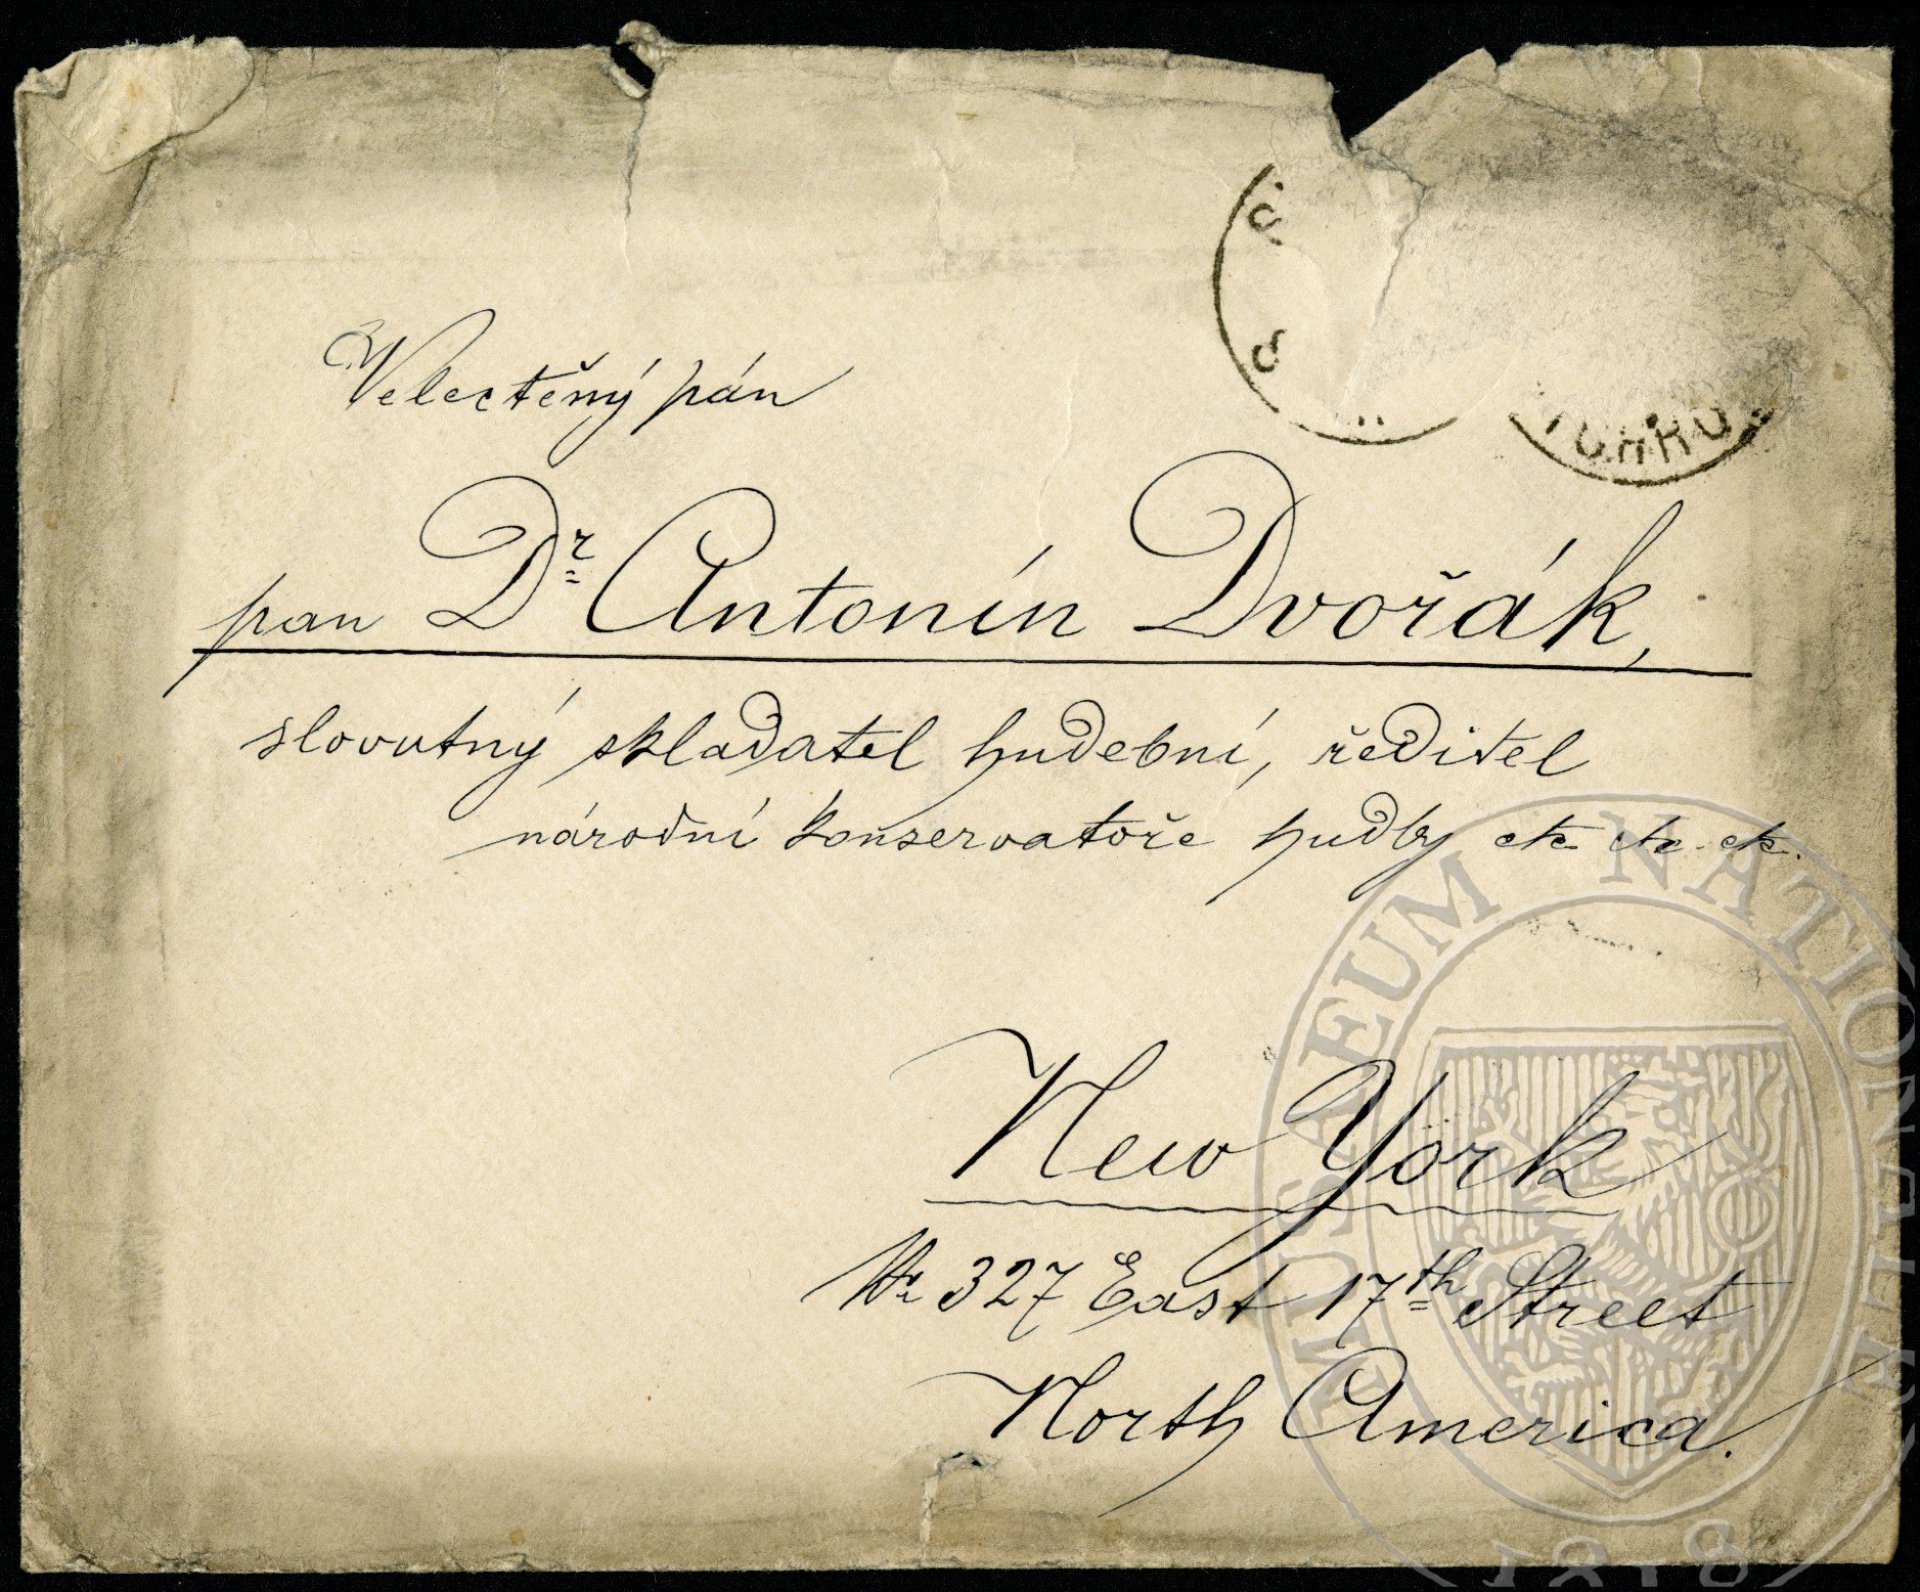 Velectěný pán
pan Dr Antonín Dvořák,
slovutný skladatel hudební, ředitel
národní konservatoře hudby etc. etc. etc.
New York
Nr 327 East 17th Street
North America.
MUSAEUM NATIONALE
1818